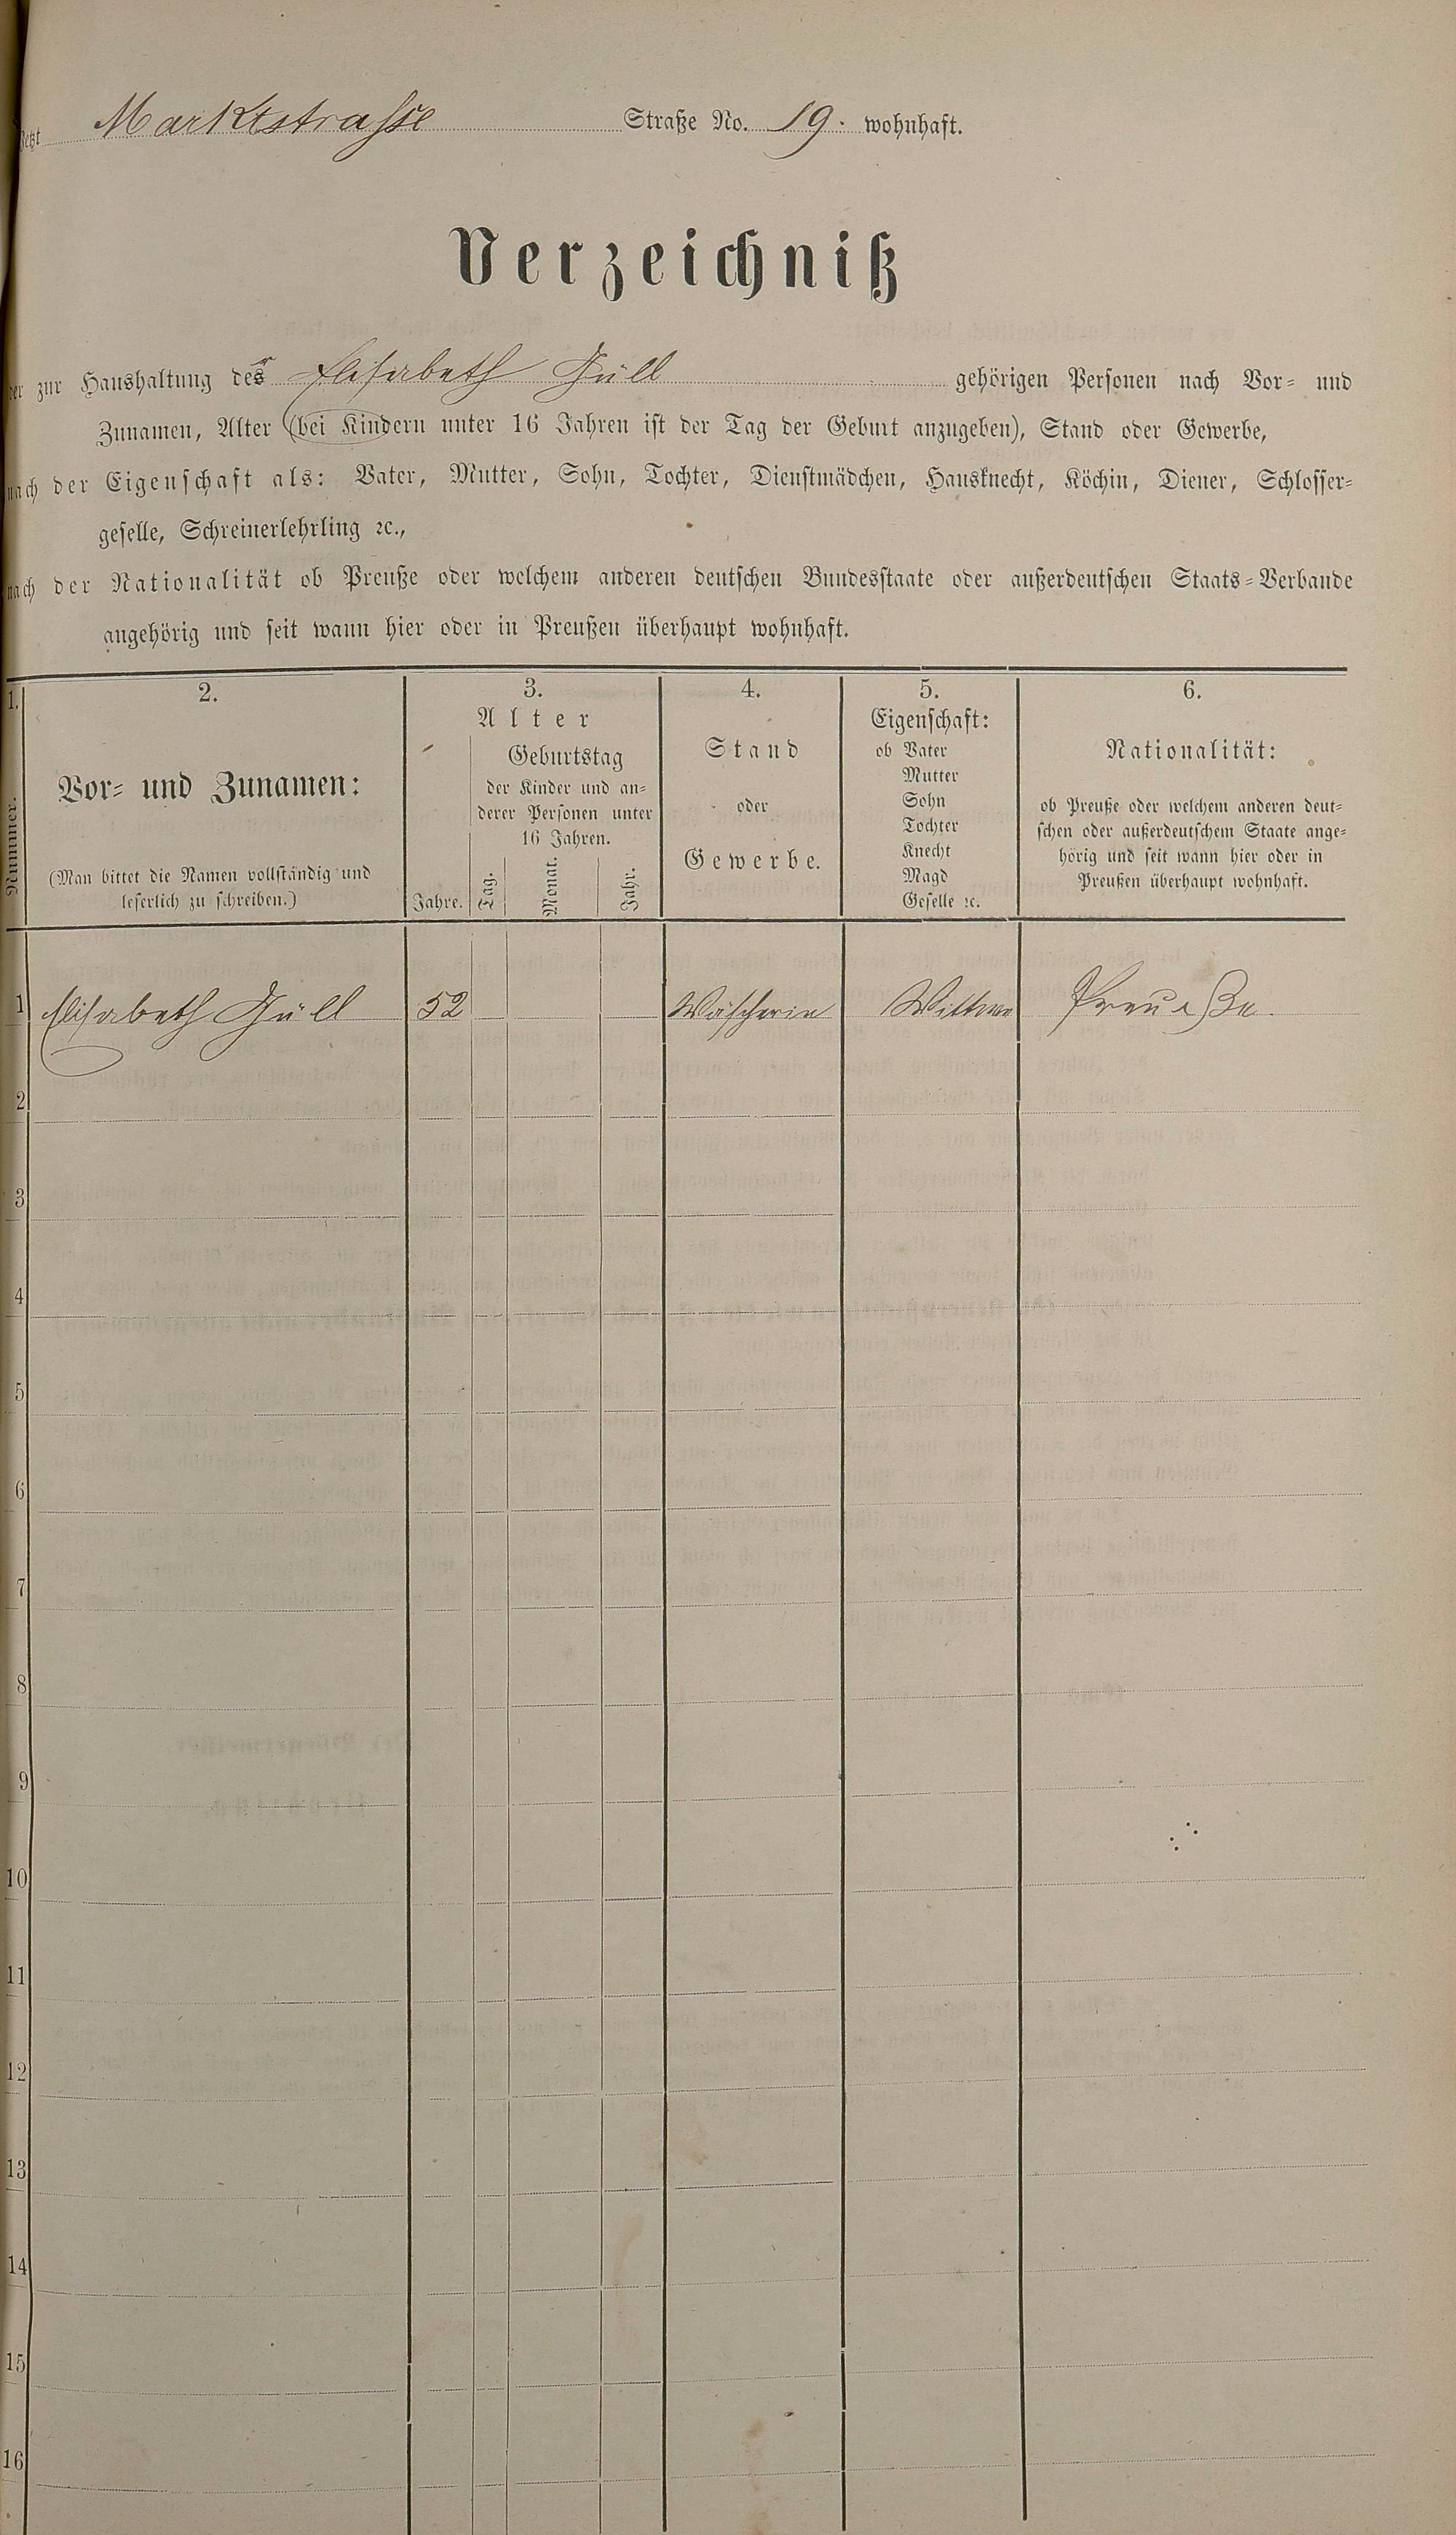 Jetzt Marktstrasse Straße No. 19. wohnhaft.
Verzeichniß
der zur Haushaltung der Elisabeth Güll gehörigen Personen nach Vor- und
Zunamen, Alter (bei Kindern unter 16 Jahren ist der Tag der Geburt anzugeben), Stand oder Gewerbe,
nach der Eigenschaft als: Vater, Mutter, Sohn, Tochter, Dienstmädchen, Hausknecht, Köchin, Diener, Schlosser-
geselle, Schreinerlehrling ꝛc.,
nach der Nationalität ob Preuße oder welchem anderen deutschen Bundesstaate oder außerdeutschen Staats-Verbande
angehörig und seit wann hier oder in Preußen überhaupt wohnhaft.
1.
Nummer.
2.
Vor- und Zunamen:
(Man bittet die Namen vollständig und
leserlich zu schreiben.)
3.
Alter
Jahre.
Geburtstag
der Kinder und an-
derer Personen unter
16 Jahren.
Tag.
Monat.
Jahr.
4.
Stand
oder
Gewerbe.
5.
Eigenschaft:
ob Vater
Mutter
Sohn
Tochter
Knecht
Magd
Geselle ꝛc.
6.
Nationalität:
ob Preuße oder welchem anderen deut-
schen oder außerdeutschem Staate ange-
hörig und seit wann hier oder in
Preußen überhaupt wohnhaft.
1 Elisabeth Güll 52 Wäscherin Wittwe Preuße.
2
3
4
5
6
7
8
9
10
11
12
13
14
15
16